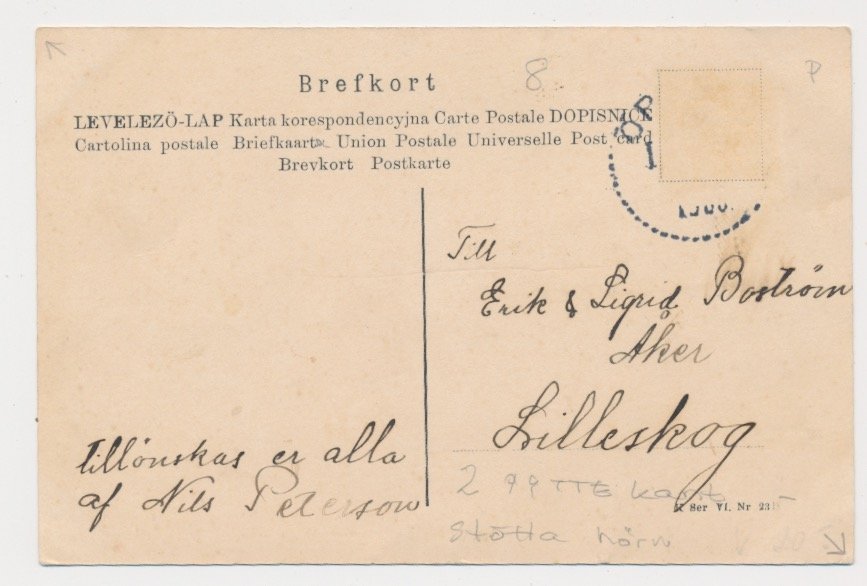 8
P
Brefkort
LEVELEZÖ-LAP Karta korespondencyjna Carte Postale DOPISNICE
Cartolina postale Briefkaart Union Postale Universelle Post card
Brevkort Postkarte
Till
Erik & Sigrid Boström
Åker
Lilleskog
tillönskas er alla
af Nils Peterson
2
Ser VI. Nr
stötta hörn